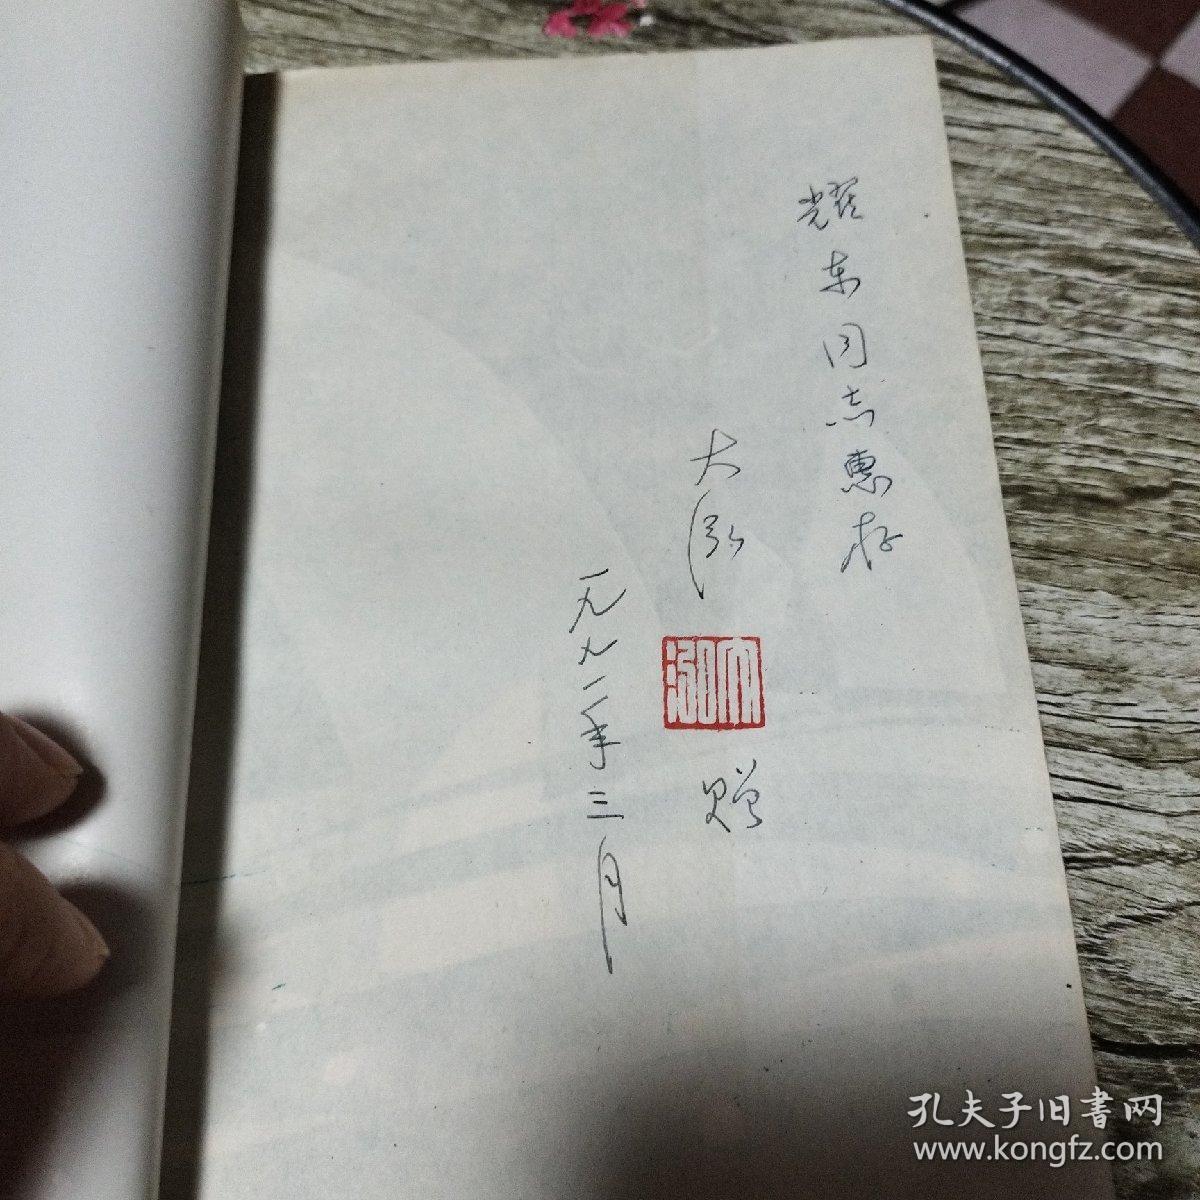 耀东同志惠存
大泓
大泓
赠
一九九二年三月
孔夫子旧书网
www.kongfz.com